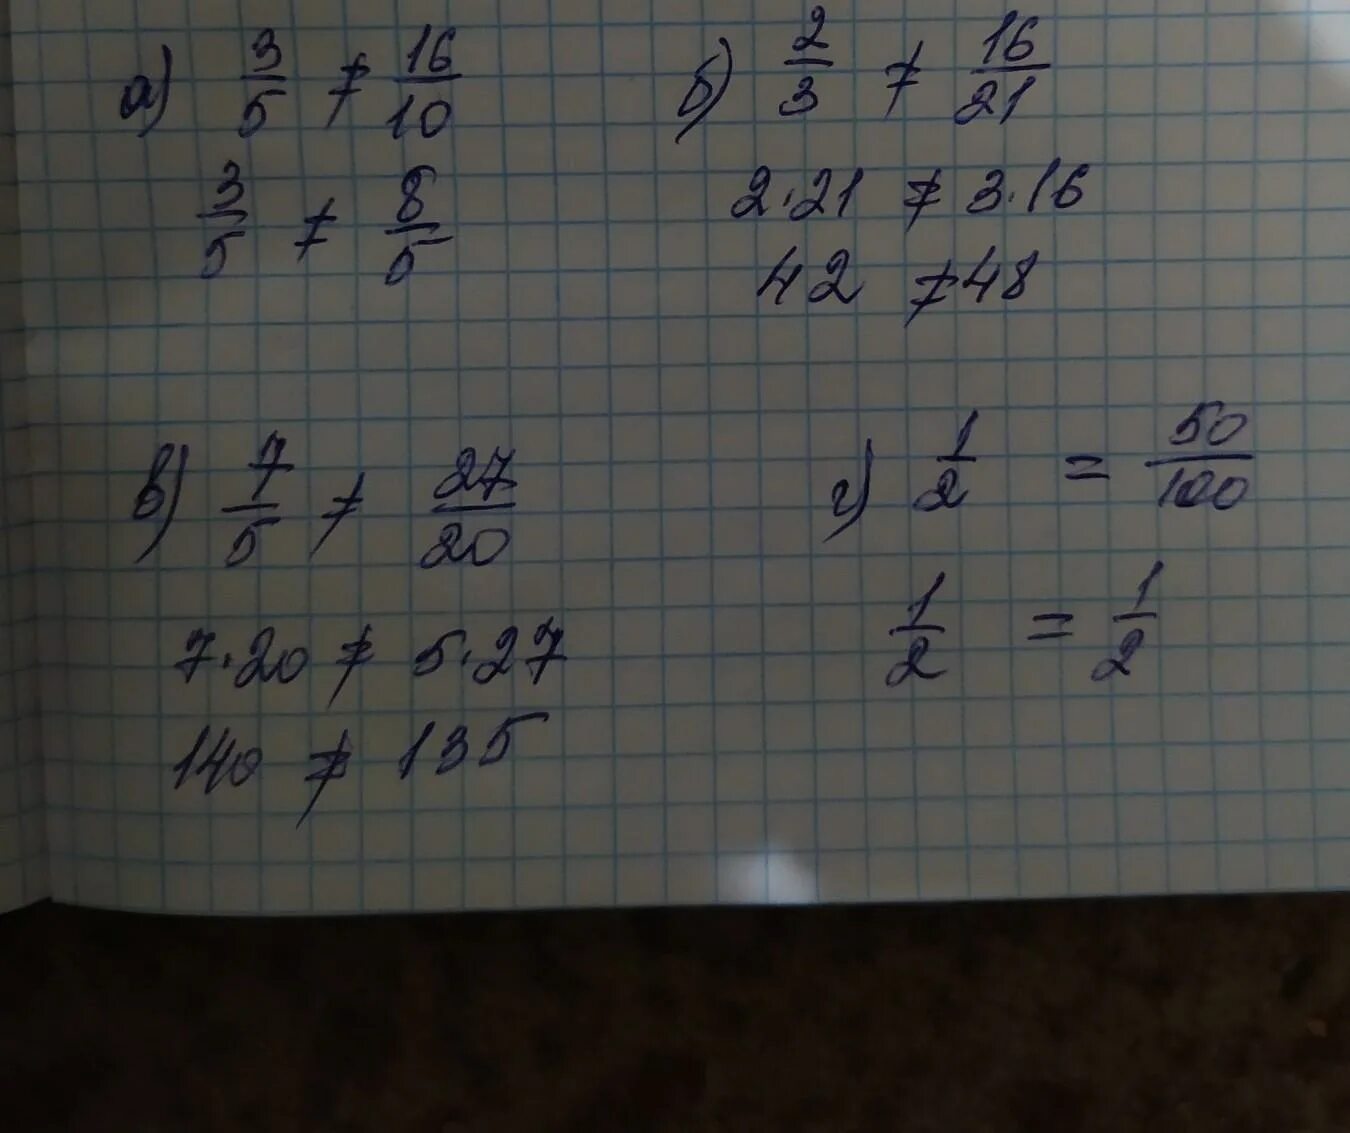 а) 3/5 ≠ 16/10
3/5 ≠ 8/5
б) 2/3 ≠ 16/21
2·21 ≠ 3·16
42 ≠ 48
в) 7/5 ≠ 27/20
7·20 ≠ 5·27
140 ≠ 135
г) 1/2 = 50/100
1/2 = 1/2